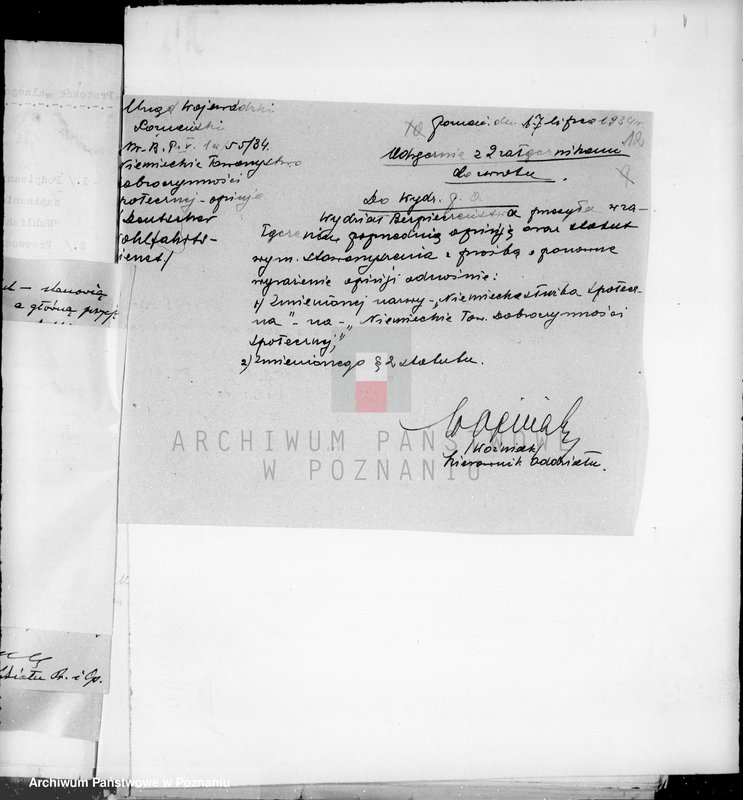 Urząd Wojewódzki
Poznański
Nr. B. P. V. 1a 55/34.
Niemieckie Towarzystwo
Dobroczynności
Społecznej - opinja
/Deutscher
Wohlfahrts-
dienst/
Poznań. dn. 17 lipca 1934 r.
12
Odręcznie z 2 załącznikami
do zwrotu.
Do Wydz.
Wydział Bezpieczeństwa przesyła w za-
łączeniu poprzednią opinję oraz statut
wym. stowarzyszenia z prośbą o ponowne
wyrażenie opinji odnośnie:
1) zmienionej nazwy - „Niemiecka służba społecz-
na" - na - „Niemieckie Tow. Dobroczynności
Społecznej,"
2) zmienionego § 2 statutu.
/Woźniak/
Kierownik Oddziału.
Protokół walnego
1./ Podpisan
2./
- stanowią
a główną
ARCHIWUM PAŃSTWOWE
W POZNANIU
Archiwum Państwowe w Poznaniu